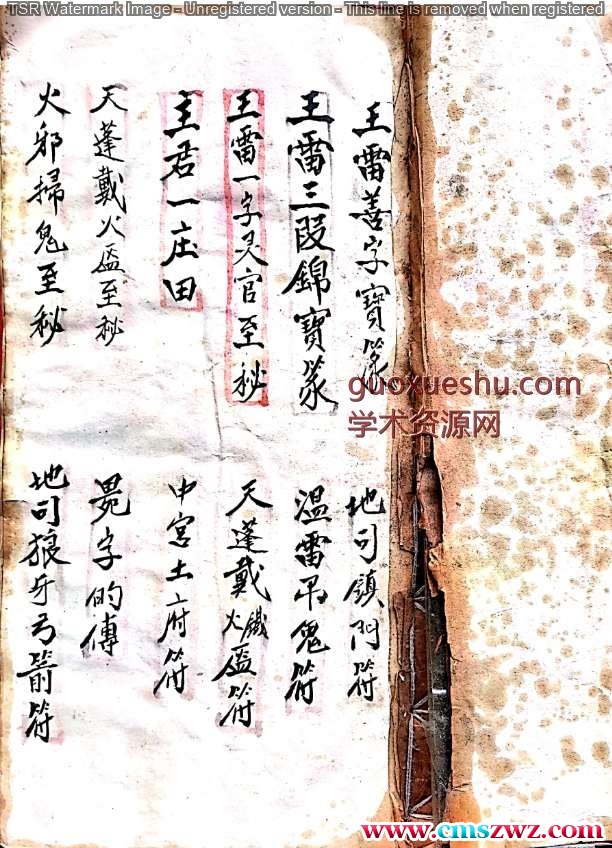 TSR Watermark Image - Unregistered version - This line is removed when registered
王雷善字寶篆
地司鎮門符
王雷三段錦寶篆
温雷吊鬼符
王雷一字灵官至秘
天蓬戴火鐵盔符
主君一庄田
中宮土府符
天蓬戴火盔至秘
字的傳
火邪掃鬼至秘
地司狼牙弓箭符
guoxueshu.com
学术资源网
www.cmszwz.com